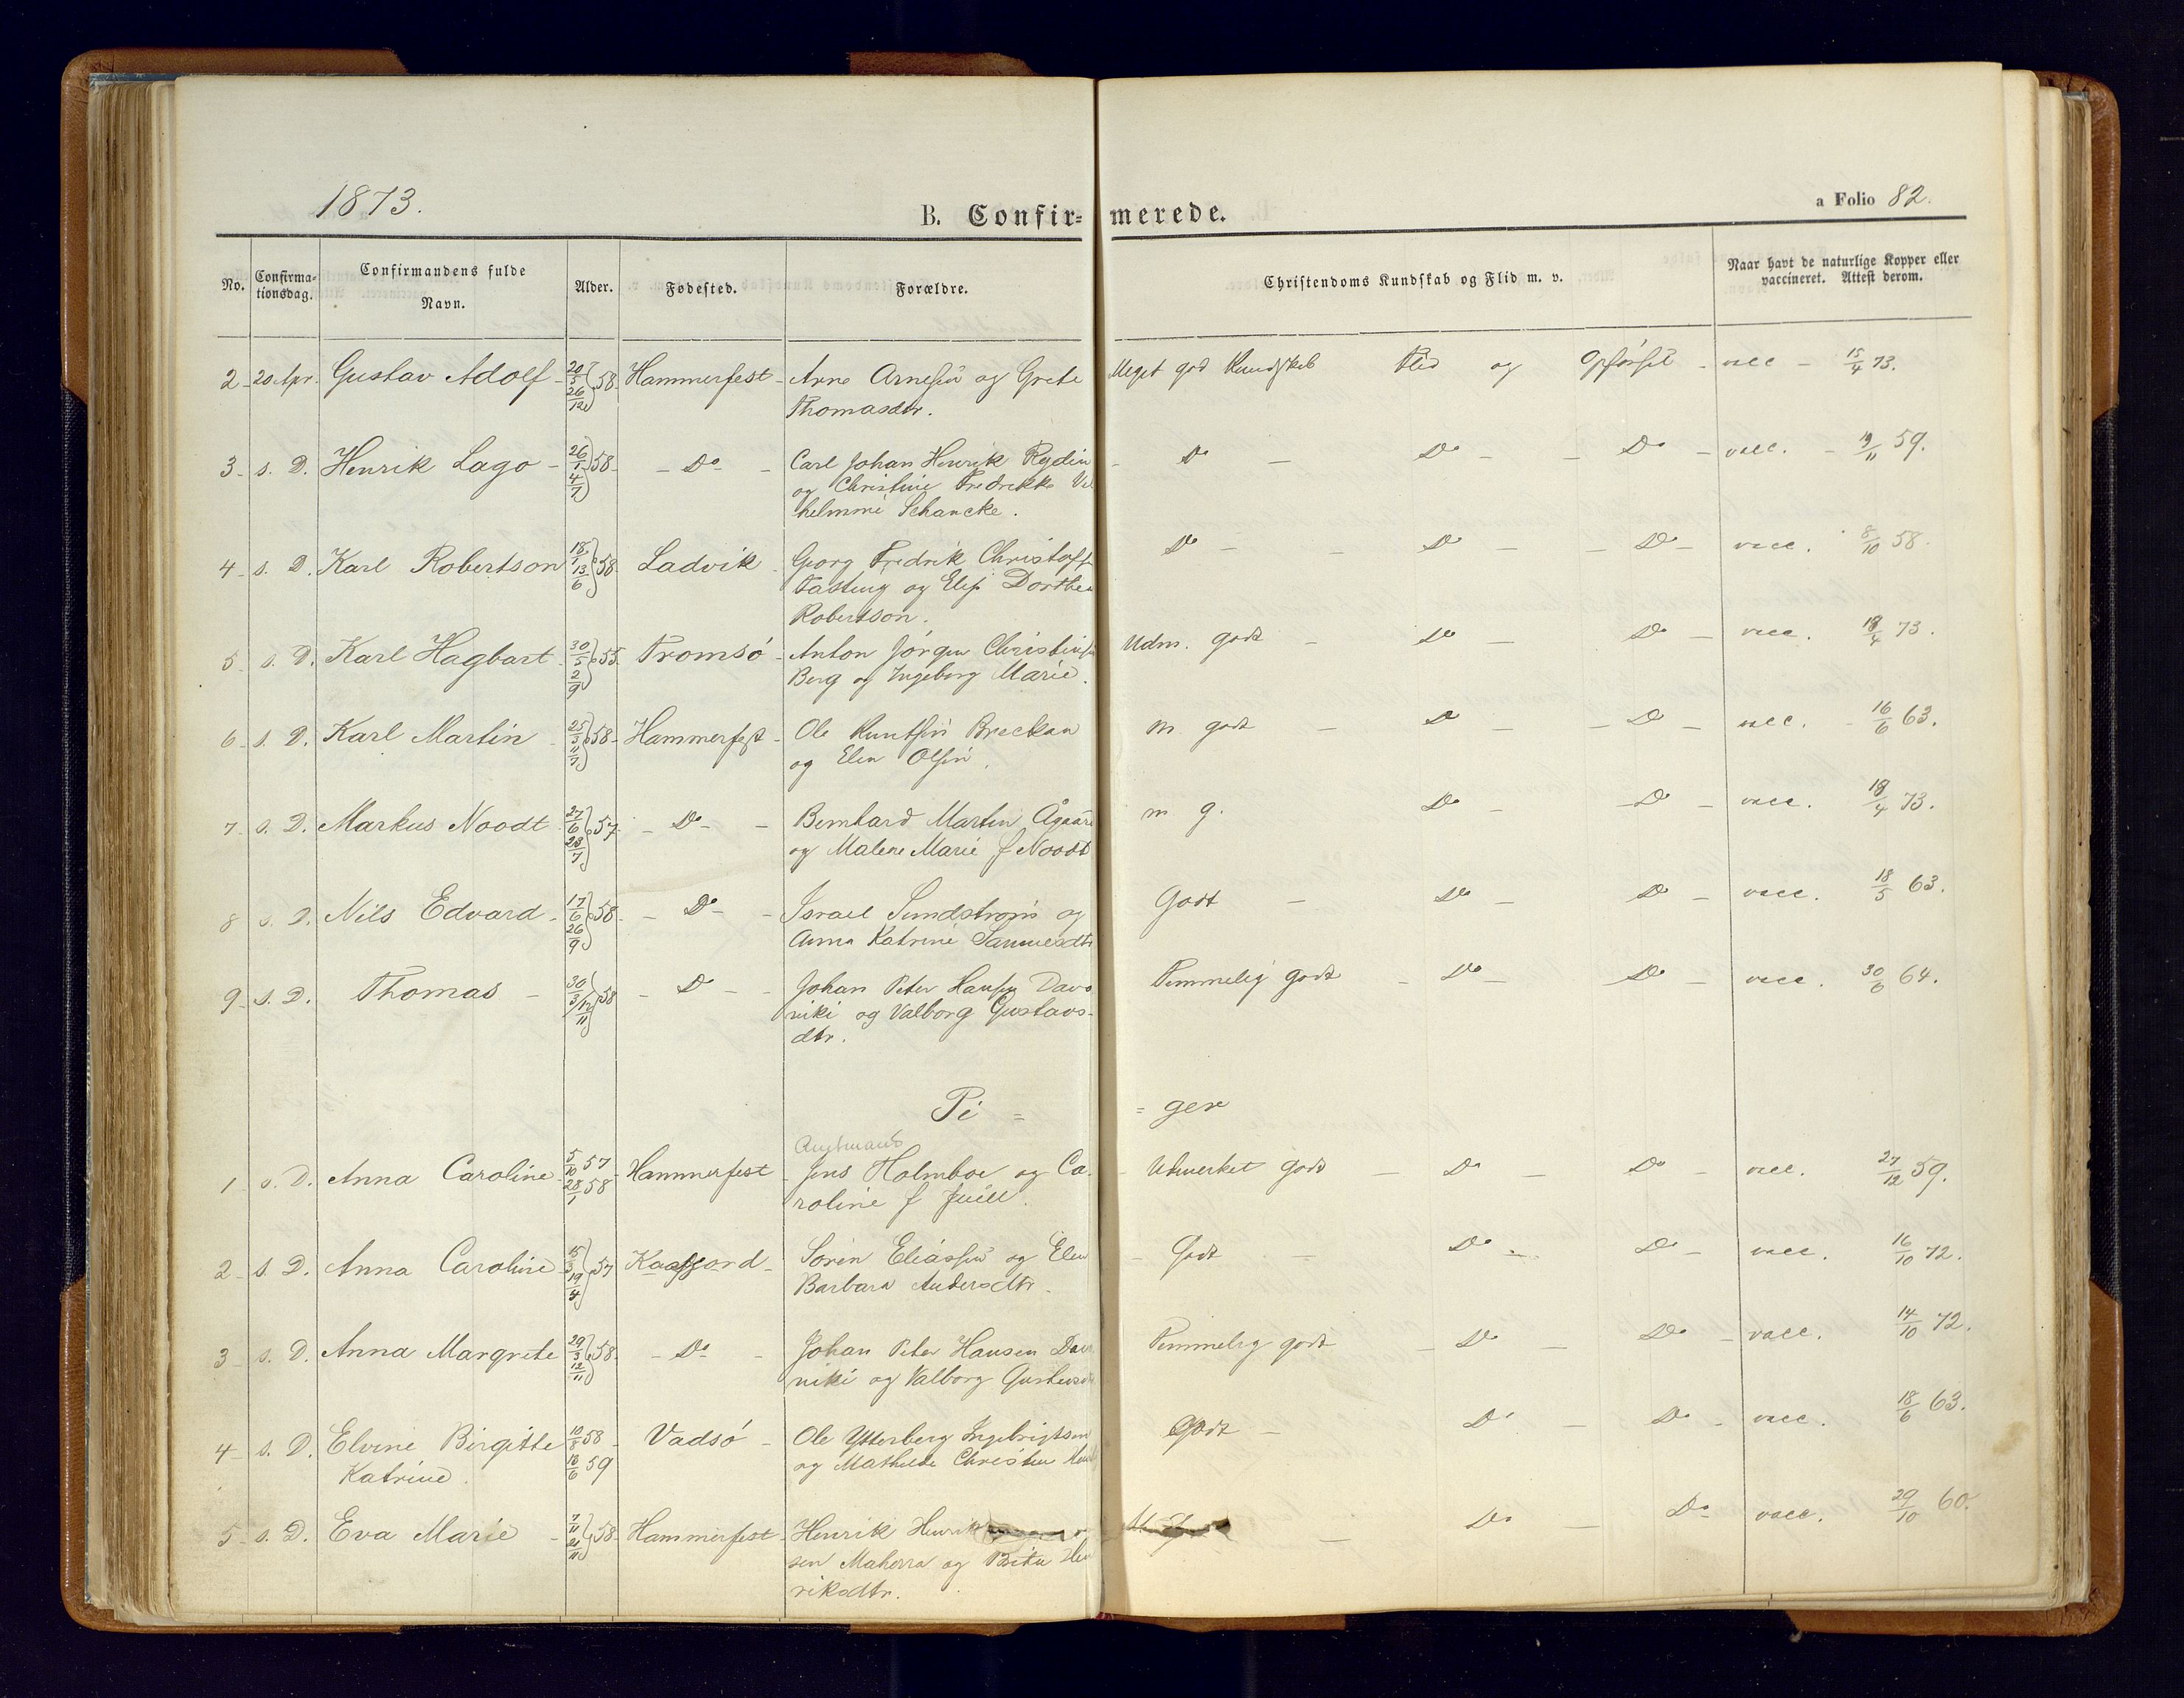 1873.
B. Confir=
merede.
a Folio 82.
No.
Confirma-
tionsdag.
Confirmandens fulde
Navn.
Alder.
Fødested.
Forældre.
Christendoms Kundskab og Flid m. v.
Naar havt de naturlige Kopper eller
vaccineret. Attest derom.
2 - 20 Apr. Gustav Adolf - 20/5 26/12 } 58 - Hammerfest - Arne Arnesen og Grete Meget god Kundskab Flid og Opførsel - vacc - 15/4 73.
Thomasdtr.
3 - s. D. Henrik Lago - 26/1 4/7 } 58 - - Do - Carl Johan Henrik Rydin - Do - Do - - Do - vacc. - 19/11 59.
og Christine Fredrikke Vil
helmine Schancke.
4 - s. D. Karl Robertson 18/1 13/6 } 58 Ladvik - Georg Fredrik Christoff Do - - Do - - Do - vacc. 8/10 58.
Fasting og Elis Dorthea
Robertson.
5 - s. D. Karl Hagbart - 30/5 2/9 } 55 Tromsö - Anton Jörgen Christensen Udm. godt - Do - Do - vacc. 18/4 73.
Berg og Ingeborg Marie.
6 - s. D. Karl Martin 25/3 11/7 } 58 - Hammerfest - Ole Knutsen Breckan m godt - Do - - Do - vacc. - 16/6 63.
og Elen Olsen.
7 - s. D. Markus Noodt - 27/6 28/7 } 57 - Do - - Bernhard Martin Ågaard m g. Do - - Do - vacc. 18/4 73.
og Malene Marie f Noodt
8 - s. D. Nils Edvard - 17/6 26/9 } 58 - - Do - - Israel Sundstrøm og Godt - Do - Do - vacc. 18/5 63.
Anna Katrine Samuelsdtr
9 - s. D. Thomas - 30/3 12/11 } 58 - Do - - Johan Peter Hansen Davo Temmelig godt - Do - Do - vacc. 30/6 64.
niki og Valborg Gustavs-
dtr.
Pi =
= ger
Amtmand
1 - s. D. Anna Caroline - 5/10 57 28/1 58 - Hammerfest - Jens Holmboe og Ca- - Udmerket godt - Do - Do - vacc. 27/12 59.
roline f Juell.
2 - s. D. Anna Caroline - 15/3 19/4 } 57 Kaafjord - Sören Eliassen og Elen - Godt - Do - Do - vacc. 16/10 72.
Barbara Andersdtr.
3 - s. D. Anna Margrete 29/3 12/11 } 58 - - Do - Johan Peter Hansen Davo Temmelig godt - Do - Do - vacc. 14/10 72.
niki og Valborg Gustavsdtr
4 - s. D. Elvine Birgitte 10/8 58 - Vadsö - Ole Ytterberg Ingebrigtsen Godt - Do - Do - vacc. 18/6 63.
Katrine. 18/6 59 og Mathilde Christine
5 - s. D. Eva Marie - 7/11 21/11 } 58 - Hammerfest - Henrik Henrik - Do - Do - vacc. 29/10 60.
sen Maherra og Brita Hen
riksdtr.